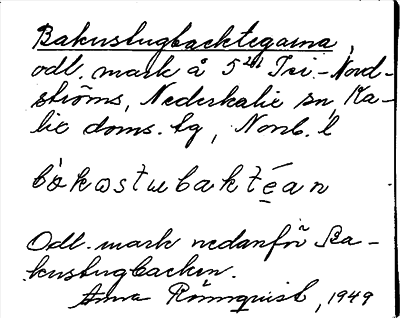 Bakustugbacktegarna,
odl. mark å 5 st Tri.-Nord-
ströms, Nederkalix sn, Ka-
lix doms. tg, Norrb. l
bòkɷstubakte̅an
Odl. mark nedanför Ba-
kustugbacken.
Anna Rönnqvist, 1949